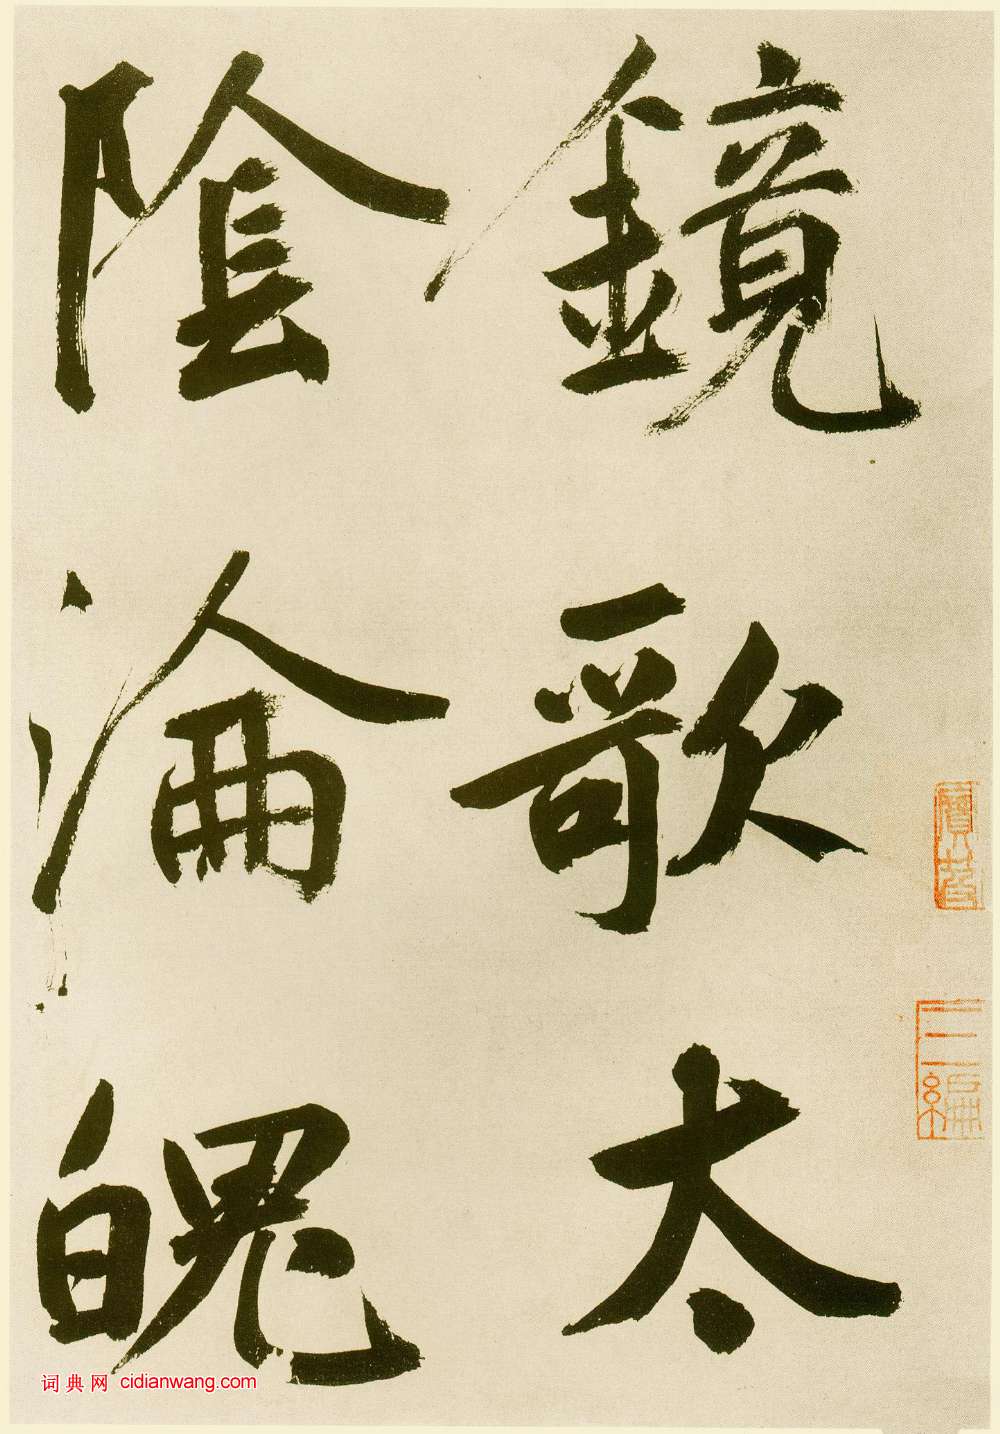 鏡歌太
陰淪魄
词典网 cidianwang.com